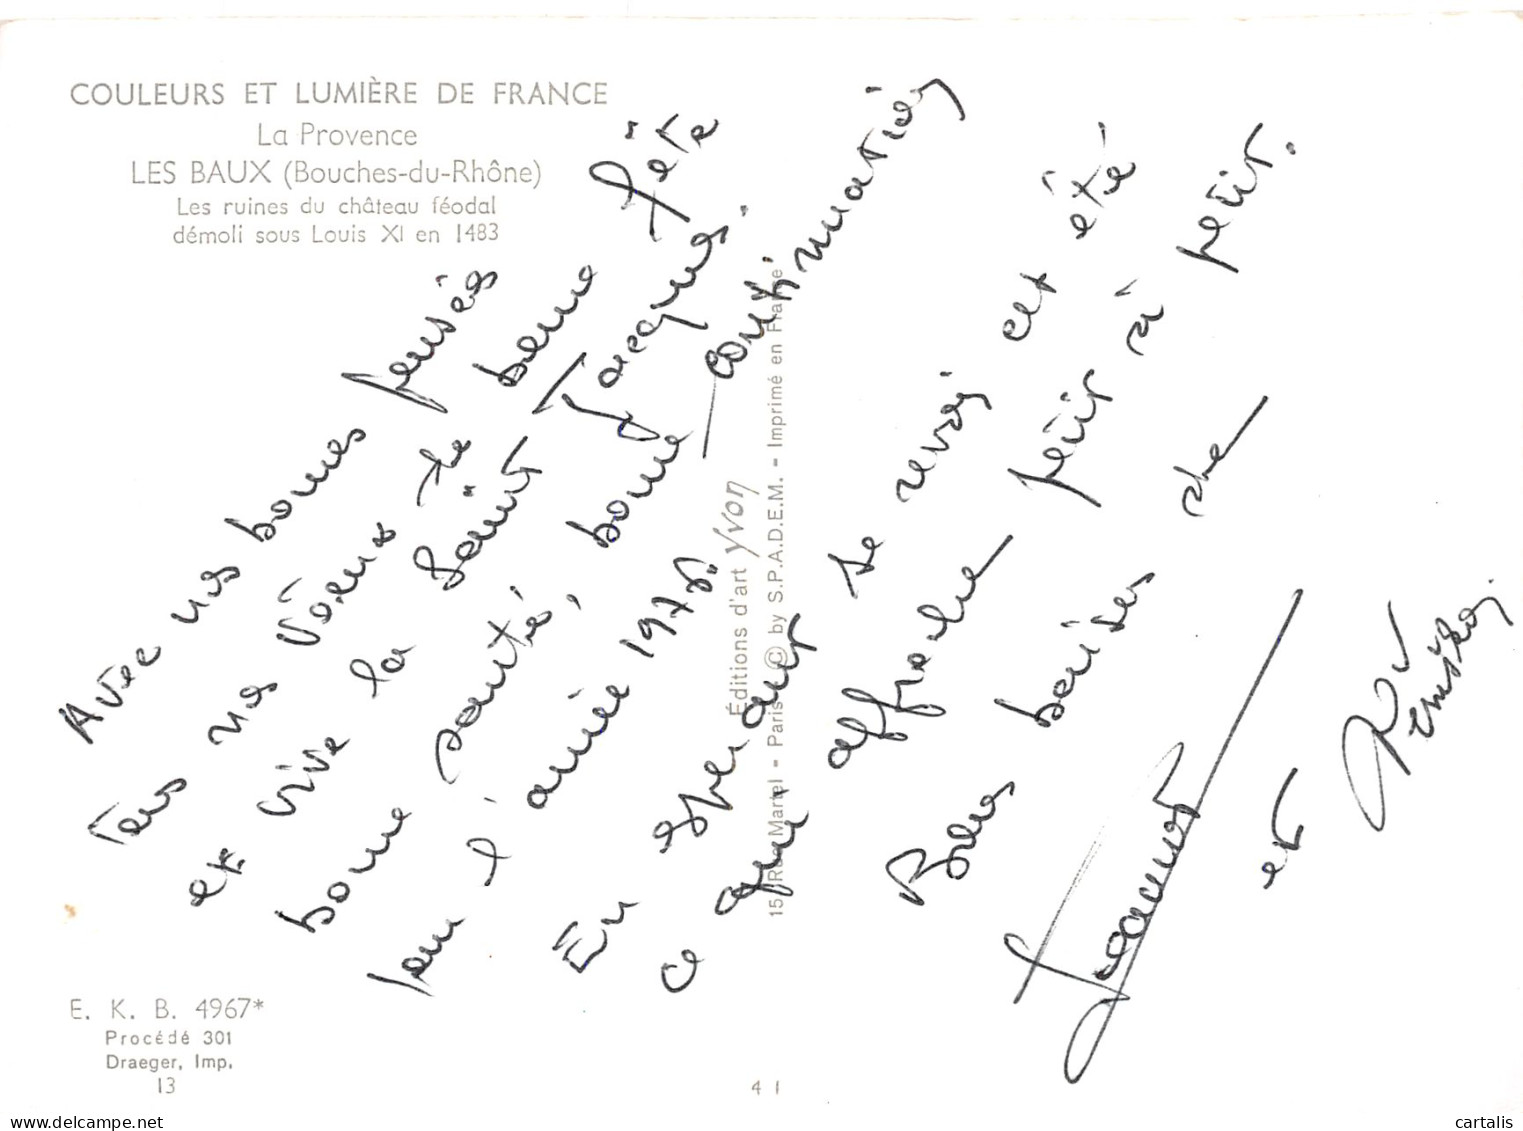 COULEURS ET LUMIÈRE DE FRANCE
La Provence
LES BAUX (Bouches-du-Rhône)
Les ruines du château féodal
démoli sous Louis XI en 1483
Avec nos bonnes pensées
Tous nos vœux de bonne fête
et vive la Saint Jacques.
bonne santé, bonne continuation
pour l'année 1978
En espérant se revoir cet été
ce qui approche petit à petit.
Bons baisers de
Jeannot
et
E. K. B. 4967*
Procédé 301
Draeger, Imp.
13
Éditions d'art Yvon
15, Rue Martel - Paris © by S.P.A.D.E.M. - Imprimé en France
41
delcampe.net
cartalis